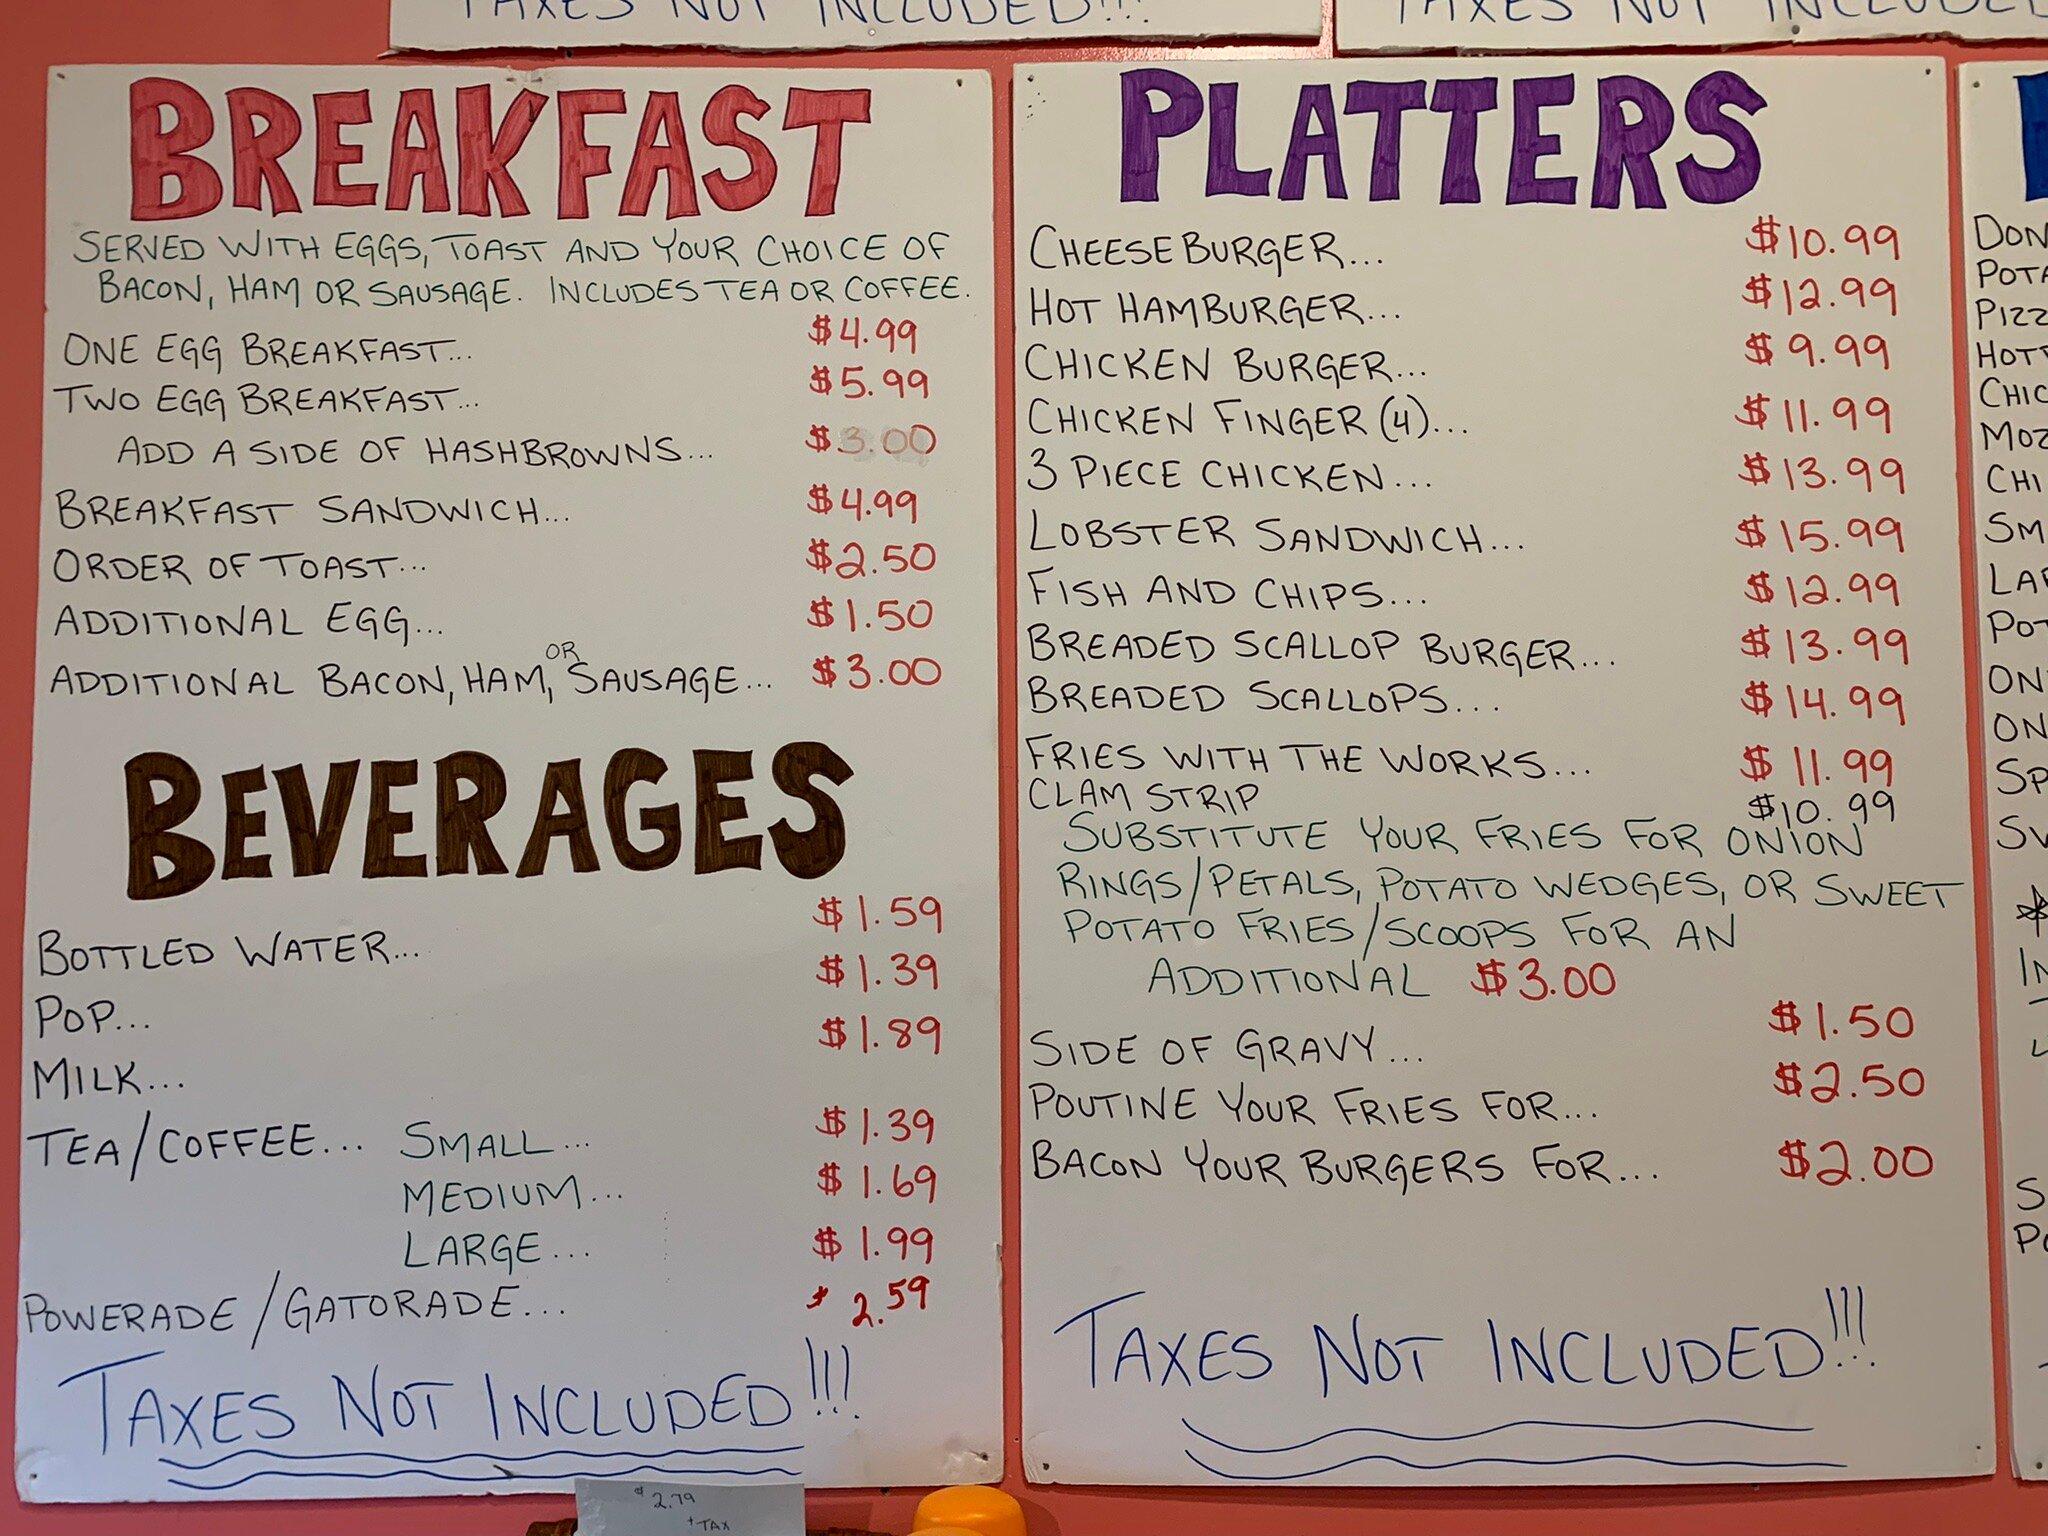 TAXES NOT INCLUDED!!!
TAXES NOT INCLUDED
BREAKFAST
SERVED WITH EGGS, TOAST AND YOUR CHOICE OF
BACON, HAM OR SAUSAGE. INCLUDES TEA OR COFFEE.
ONE EGG BREAKFAST... $4.99
TWO EGG BREAKFAST... $5.99
ADD A SIDE OF HASHBROWNS... $3.00
BREAKFAST SANDWICH... $4.99
ORDER OF TOAST... $2.50
ADDITIONAL EGG... $1.50
ADDITIONAL BACON, HAM, OR SAUSAGE... $3.00
BEVERAGES
BOTTLED WATER... $1.59
POP... $1.39
MILK... $1.89
TEA/COFFEE... SMALL... $1.39
MEDIUM... $1.69
LARGE... $1.99
POWERADE/GATORADE... $2.59
TAXES NOT INCLUDED!!!
$2.79
+TAX
PLATTERS
CHEESEBURGER... $10.99
HOT HAMBURGER... $12.99
CHICKEN BURGER... $9.99
CHICKEN FINGER (4)... $11.99
3 PIECE CHICKEN... $13.99
LOBSTER SANDWICH... $15.99
FISH AND CHIPS... $12.99
BREADED SCALLOP BURGER... $13.99
BREADED SCALLOPS... $14.99
FRIES WITH THE WORKS... $11.99
CLAM STRIP $10.99
SUBSTITUTE YOUR FRIES FOR ONION
RINGS/PETALS, POTATO WEDGES, OR SWEET
POTATO FRIES/SCOOPS FOR AN
ADDITIONAL $3.00
SIDE OF GRAVY... $1.50
POUTINE YOUR FRIES FOR... $2.50
BACON YOUR BURGERS FOR... $2.00
TAXES NOT INCLUDED!!!
DON
POTA
PIZZ
HOT
CHIC
MOZ
CHI
SM
LAR
POT
ON
ON
SP
SW
IN
S
PO